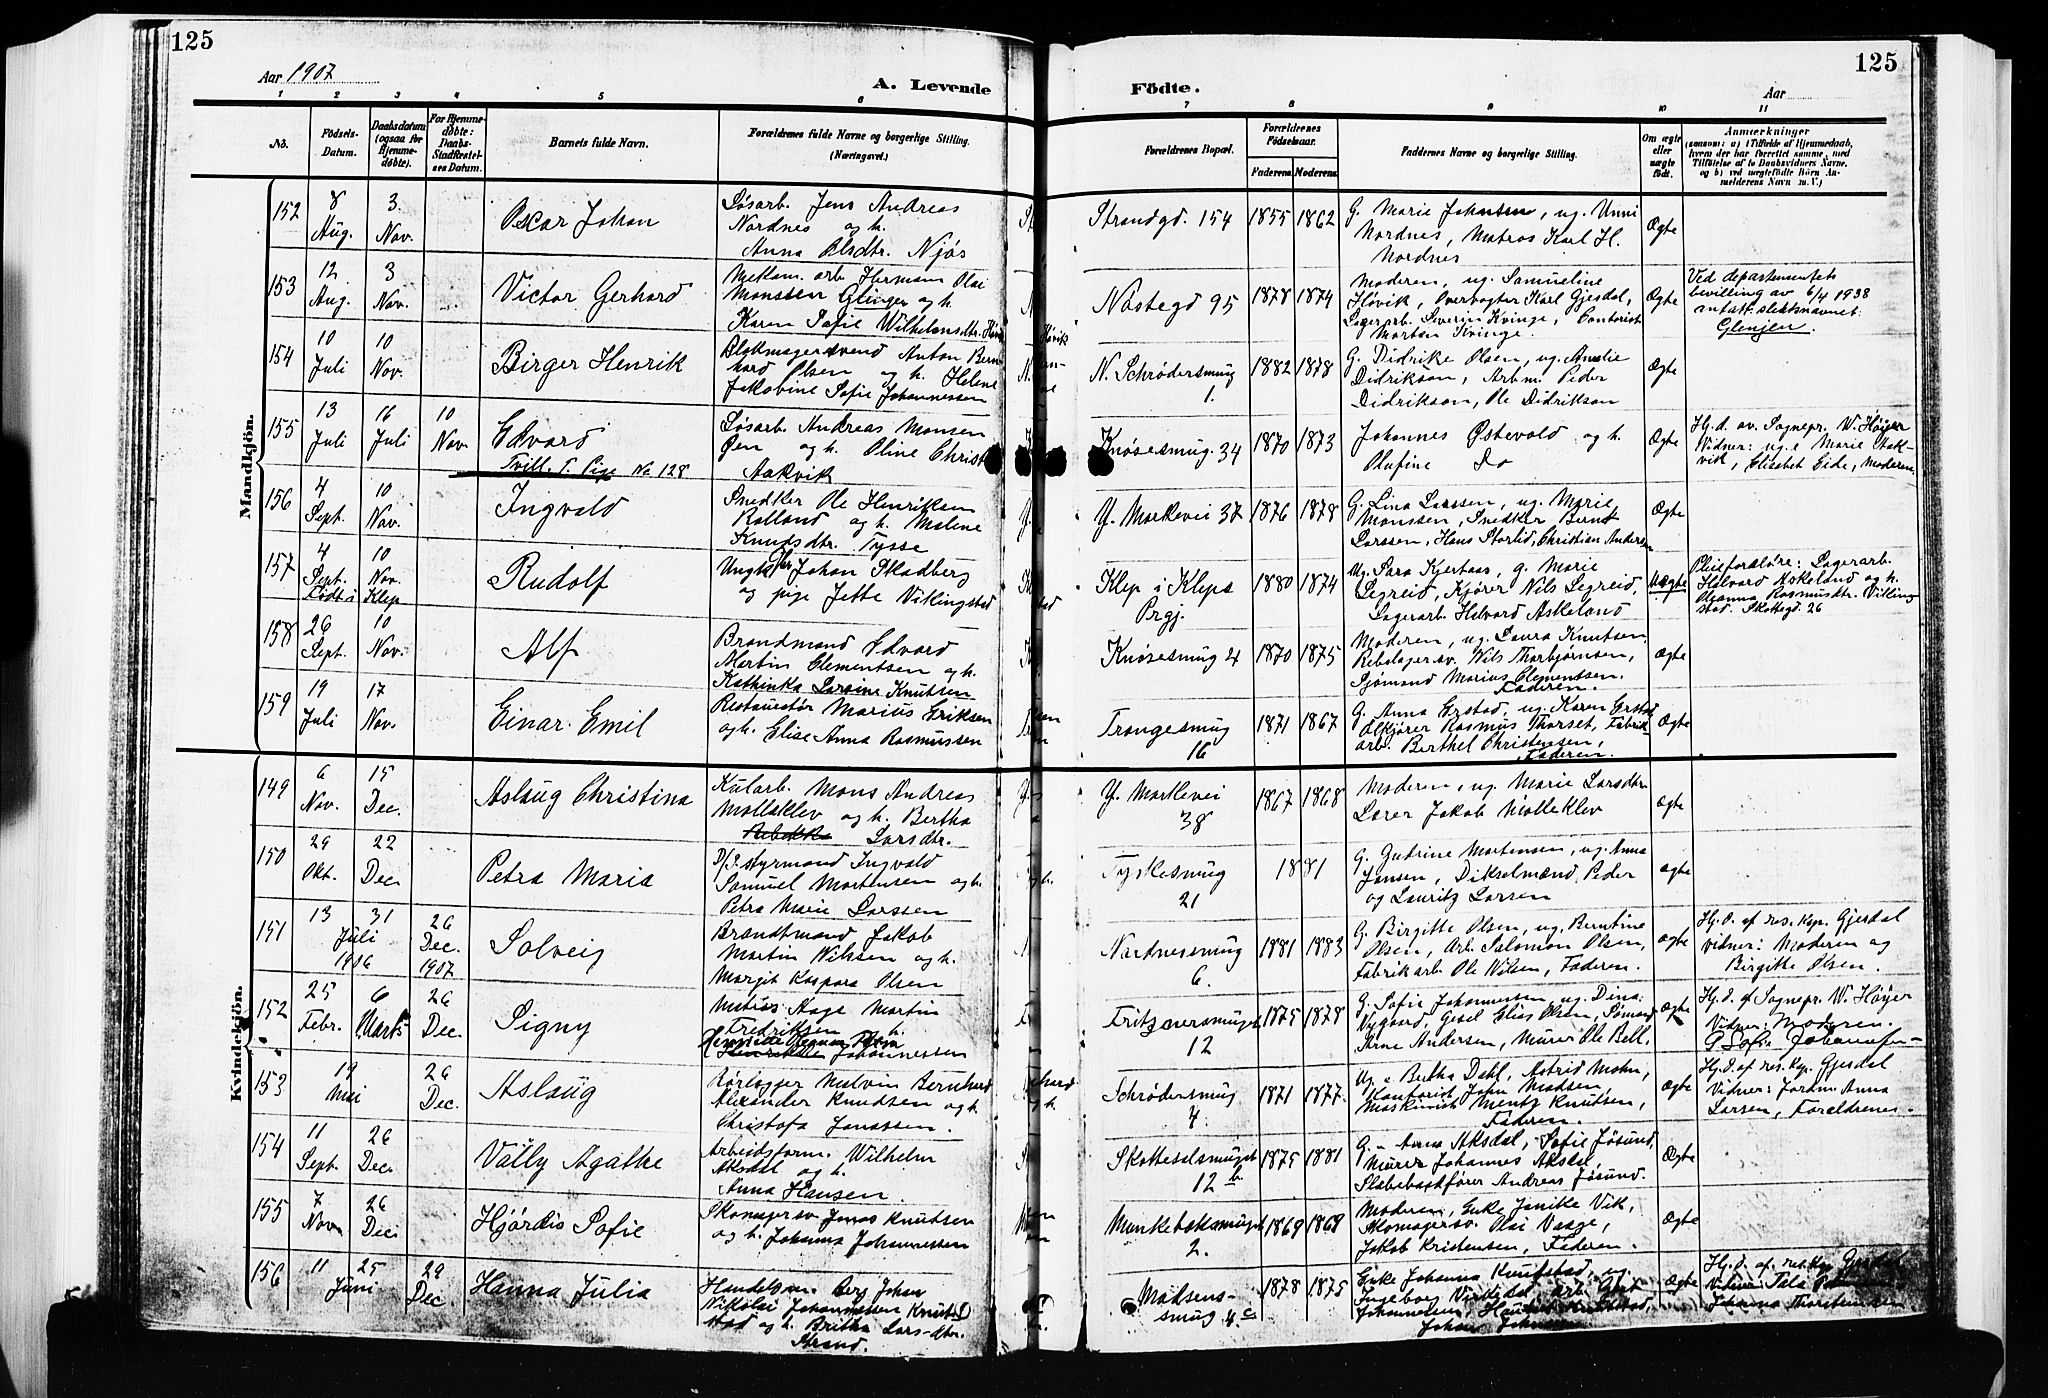 125
125
Aar 1907
A. Levende
Födte.
Aar
1 2 3 4 5 6 7 8 9 10 11
No.
Födsels-Datum.
Daabsdatum (ogsaa for Hjemmedøbte).
For Hjemmedøbte: Daabs-Stadfæstelses Datum.
Barnets fulde Navn.
Forældrenes fulde Navne og borgerlige Stilling. (Næringsvei.)
Forældrenes Bopæl.
Forældrenes Födselsaar.
Faderens. Moderens.
Faddernes Navne og borgerlige Stilling.
Om ægte eller uægte født.
Anmærkninger
(saasom: a) i Tilfælde af Hjemmedaab, hvem der har forrettet samme, med Tilföielse af to Daabsvidners Navne, og b) ved uægtefödte Börn Anmelderens Navn m. V.)
Mandkjön.
152 8 Aug. 3 Nov. Oscar Johan
Løsarb. Jens Andreas
Nordnes og h.
Anna Olsdtr. Njøs
Strandgd. 154 1855 1862
G. Marie Johansen, ug. Unni
Nordnes, Matros Karl H.
Nordnes
Ægte
153 12 Aug. 3 Nov. Victor Gerhard
Mekan. arb. Herman Olai
Monssen Glinger og h.
Karen Sofie Wilhelmsdtr. Høvik
Nøstegd 95 1878 1874
Moderen, ug. Samueline
Høvik, Overvogter Karl Gjesdal,
Lagerarb. Severin Kvinge, Contorist
Morten Kvinge.
Ægte
Ved departementets
bevilling av 6/4 1938
antatt slektsnavnet:
Glenjen.
154 10 Juli 10 Nov. Birger Henrik
Blokmagersvend Anton Bern
hard Olsen og h. Helene
Jakobine Sofie Johannessen
N. Schrødersmug 1. 1882 1878
G. Didrike Olsen, ug. Amalie
Didrikson, Arbm. Peder
Didrikson, Ole Didrikson
Ægte
155 13 Juli 16 Juli 10 Nov. Edvard
Tvill. T. Pige No 128
Løsarb. Andreas Monsen
Øen og h. Oline Christ
Aakvik
Knøsesmug. 34 1870 1873
Johannes Østevold og h.
Olufine Do
Ægte
Hj.d. av. Sognepr. W. Høyer
Vidner: ug.e Marie Aak-
vik, Elisabet Eide, Moderen
156 4 Sept. 10 Nov. Ingvald
Snedker Ole Henriksen
Rolland og h. Maline
Knudsdtr. Tysse
Y. Markevei 37 1876 1878
G. Lina Larssen, ug. Marie
Monssen, Snedker Bernt
Larssen, Hans Storlid, Christian Andersen
Ægte
157 4 Sept. 10 Nov. Født i Klep Rudolf
Ungk. Per Johan Skadberg
og pige Jette Vikingstad
Klep i Kleps Prgj. 1880 1874
Ug. Sara Kjertaas, g. Marie
Legreid, Kjører Nils Legreid,
Lagerarb. Halvard Askeland
Uægte
Pleieforældre: Lagerarb.
Halvard Askeland og h.
Oleanna Rasmusdtr. Viking
stad. Skottegd. 26
158 26 Sept. 10 Nov. Alf
Brandmand Edvard
Martin Clementsen og h.
Kathinka Larsine Knutsen
Knøsesmug 4 1870 1875
Moderen, ug. Laura Knutsen
Rebslagersv. Nils Thorbjørnsen,
Sjømand Marius Clementsen.
Faderen.
Ægte
159 19 Juli 17 Nov. Einar Emil
Restauratør Marius Eriksen
og h. Elise Anna Rasmussen
Trangesmug 16 1871 1867
G. Anna Erstad, ug. Karen Erstad
Ølkjører Rasmus Thorset, Fabrik-
arb. Berthel Christensen,
Faderen.
Ægte
Kvindekjön.
149 6 Nov. 15 Dec. Aslaug Christina
Kularb. Mons Andreas
Mølleklev og h. Bertha
Larsdtr.
Y. Markevei 38 1867 1868
Moderen, ug. Marie Larsdtr.
Lærer Jakob Mølleklev
ægte
150 29 Okt. 22 Dec. Petra Maria
D/S. styrmand Ingvald
Samuel Mortensen og h.
Petra Marie Larssen
Tyskesmug 21 1881
G. Gudrine Mortensen, ug. Anna
Jansen, Dikselmænd Peder
og Lauritz Larsen
ægte
151 13 31 Juli 1906 26 Dec. 1907 Solveig
Brandtmand Jakob
Martin Nilsen og h.
Margit Kaspara Olsen
Nordnessmug 6. 1881 1883
G. Birgitte Olsen, ug. Berntine
Olsen, Arb. Salomon Olsen,
Fabrikarb. Ole Nilsen, Faderen.
ægte
Hj.d. af res. kap. Gjesdal
Vidner: Moderen og
Birgitte Olsen.
152 25 Febr. 6 Marts 26 Dec. Signy
Matros Aage Martin
Fredriksen h.
Johannessen
Fritznersmuget 12 1875 1878
G. Sofie Johannessen, ug. Dina
Nygaard, Gesel Elias Olsen, Sømand
Arne Andersen, Murer Ole Bell.
ægte
Hj.d. af Sognepr. W. Høyer
Vidner: Moderen.
G. Sofie Johannesen
153 19 Mai 26 Dec. Aslaug
Rørlægger Malvin Bernhard
Alexander Knudsen og h.
Christofa Jonassen.
Schrødersmug 4. 1871 1877
Ug. e Bertha Dahl, Astrid Mohn,
Kontorist John Madsen,
Maskinist Mentz Knutsen,
Faderen.
ægte
Hj.d. af res. kap. Gjesdal
Vidner: Jordm. Anna
Larsen, Forældrene.
154 11 Sept. 26 Dec. Vally Agathe
Arbeidsform. Wilhelm
Aksdal og h.
Anna Hansen.
Skottesalsmuget 12 b 1875 1881
G. Anna Aksdal, Sofie Jøsund,
Murer Johannes Aksdal,
Slæbebaadfører Andreas Jøsund.
Ægte
155 7 Nov 26 Dec. Hjørdis Sofie
Skomagersv. Jonas Knutsen
og h. Johanna Johannessen
Munkebæksmuget 2. 1869 1869
Moderen, Enke Janike Vik,
Skomagersv. Olai Vaage,
Jakob Kristensen, Faderen.
Ægte
156 11 25 Juni 29 Dec. Hanna Julia
Handelsm. Berg Johan
Nikolai Johannessen Knut
stad og h. Britha Lars-dtr.
Strand.
Madsens-smug 4 c 1878 1875
Enke Johanna Knutstad, ug.
Ingeborg
Johannessen,
Ægte
Hj.d. af res. kap. Gjesdal
Vidner:
Johanna Thorsteinsen